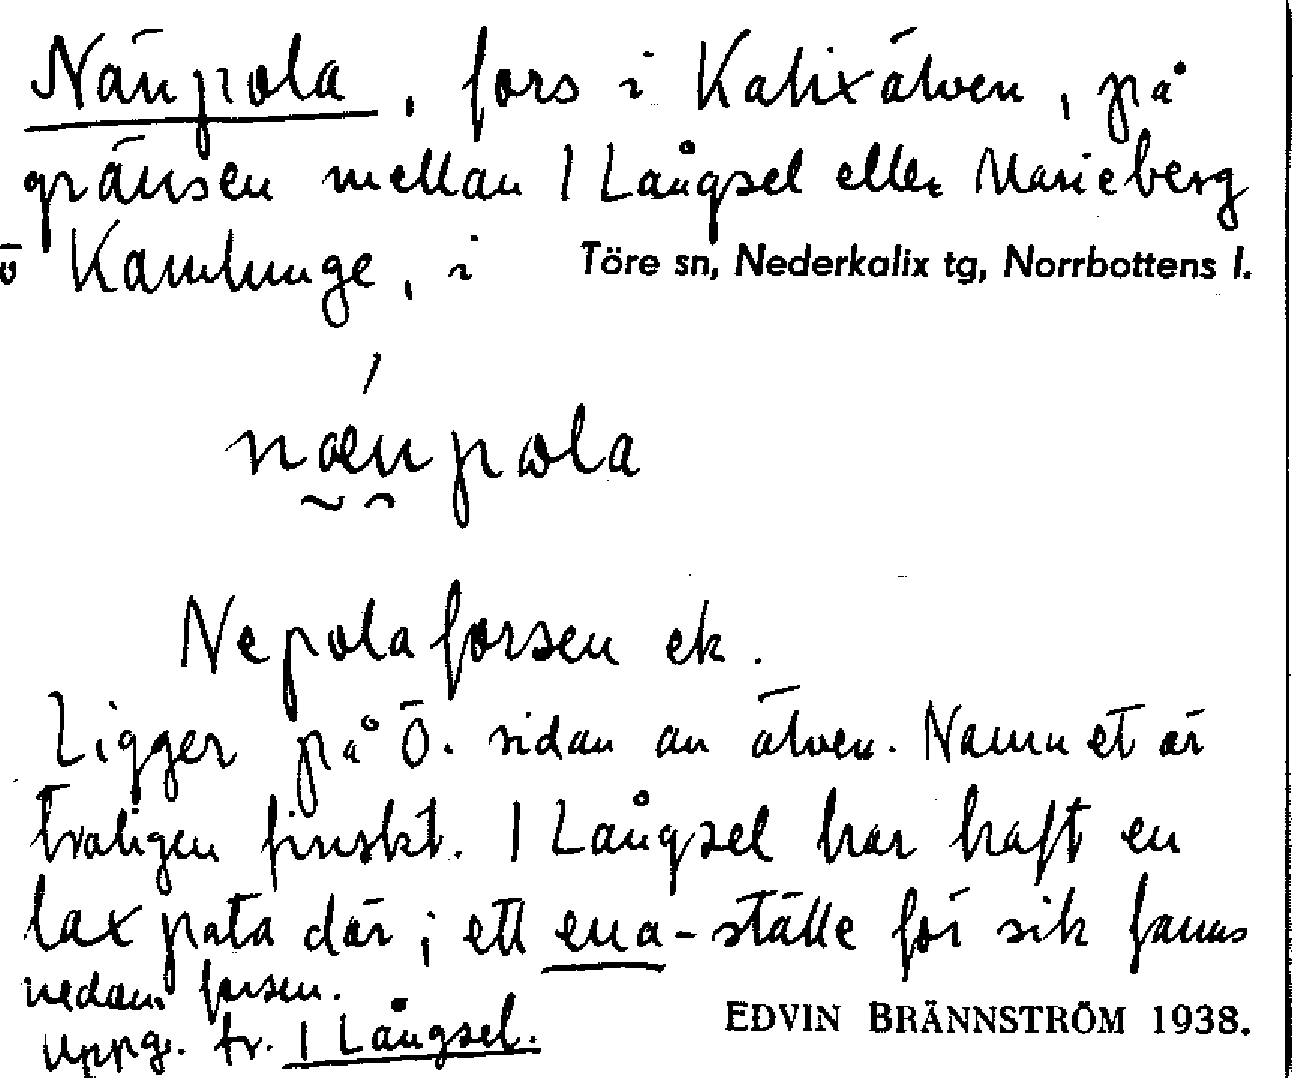 Nänpola, fors i Kalixälven, på
gränsen mellan 1 Långsel eller Marieberg
o Kamlunge, i Töre sn, Nederkalix tg, Norrbottens l.
nǽnpωla
Nepolaforsen ek.
Ligger på Ö. sidan av älven. Namnet är
troligen finskt. 1 Långsel har haft en
laxpata där; ett ena-ställe för sik fanns
nedanf forsen.
Uppg. fr. 1 Långsel.
EDVIN BRÄNNSTRÖM 1938.